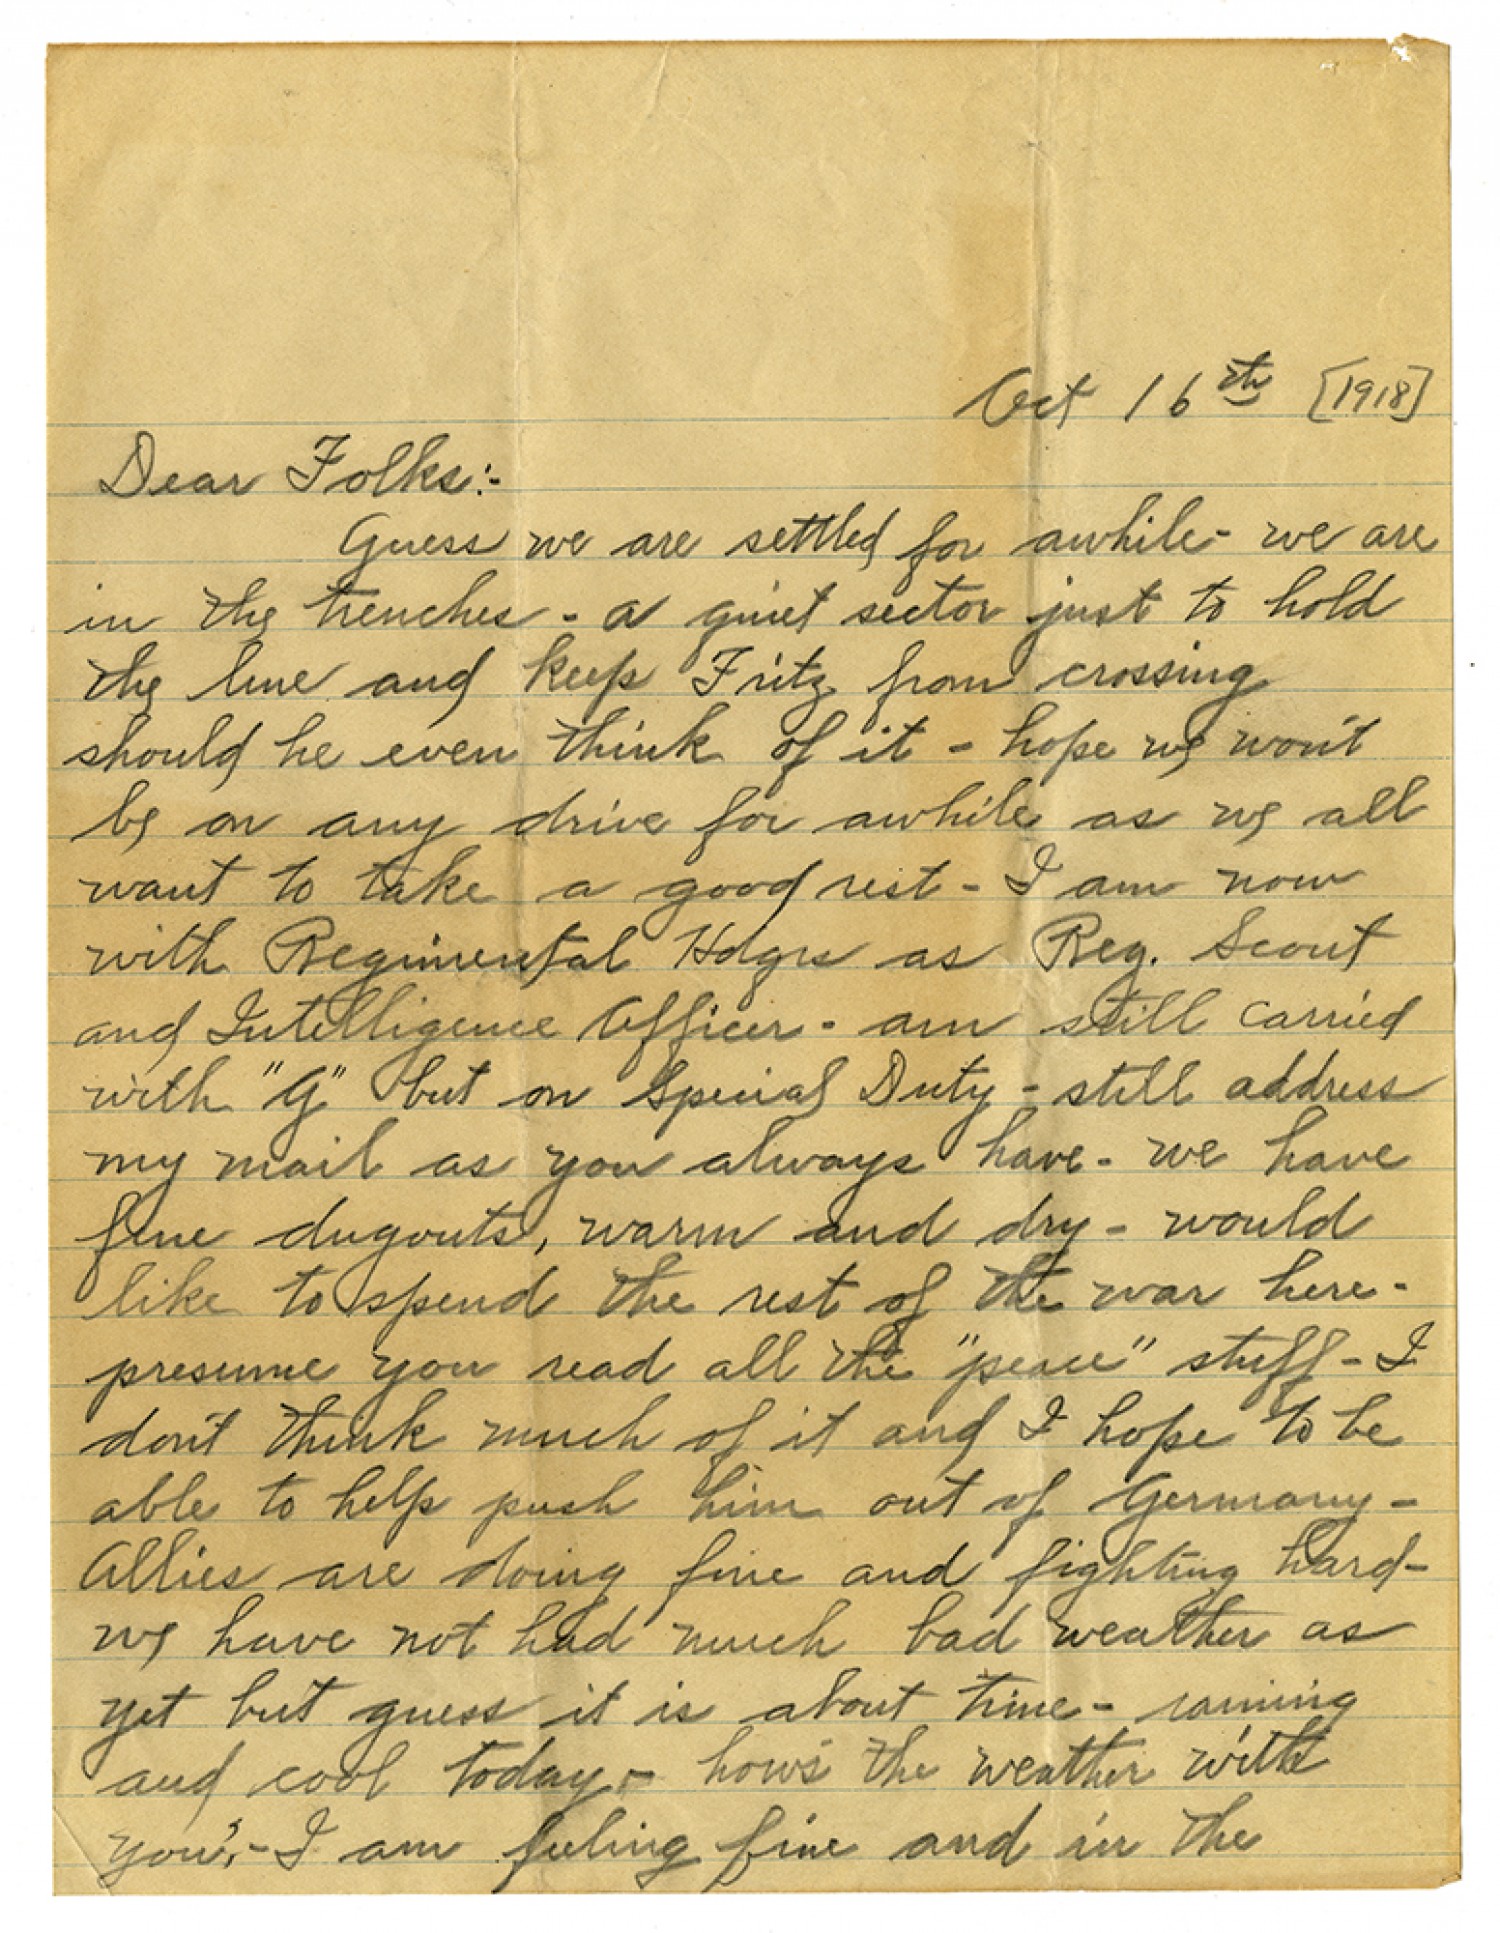 Oct 16th [1918]
Dear Folks:-
Guess we are settled for awhile - we are
in the trenches - a quiet sector just to hold
the line and keep Fritz from crossing
should he even think of it - hope we won't
be on any drive for awhile as we all
want to take a good rest - I am now
with Regimental Hdqrs as Reg. Scout
and Intelligence Officer - am still carried
with "G" but on Special Duty - still address
my mail as you always have - we have
fine dugouts, warm and dry - would
like to spend the rest of the war here -
presume you read all the "peace" stuff - I
don't think much of it and I hope to be
able to help push him out of Germany -
Allies are doing fine and fighting hard -
we have not had much bad weather as
yet but guess it is about time - raining
and cool today - how's the weather with
you? - I am feeling fine and in the